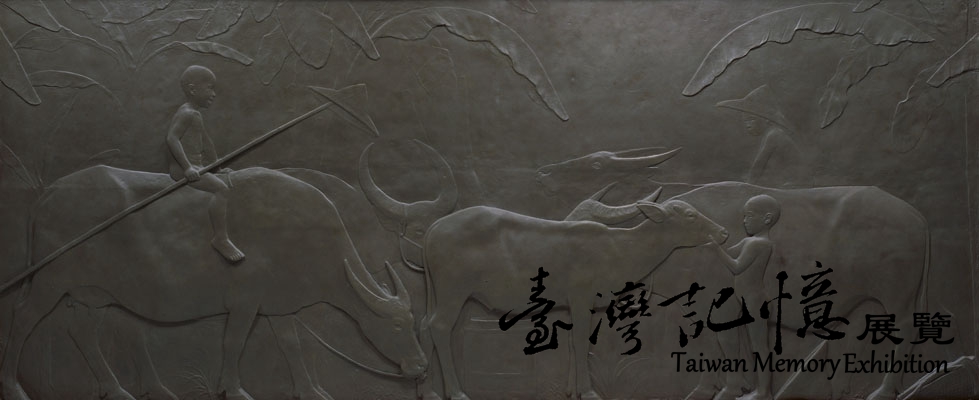 臺灣記憶展覽
Taiwan Memory Exhibition